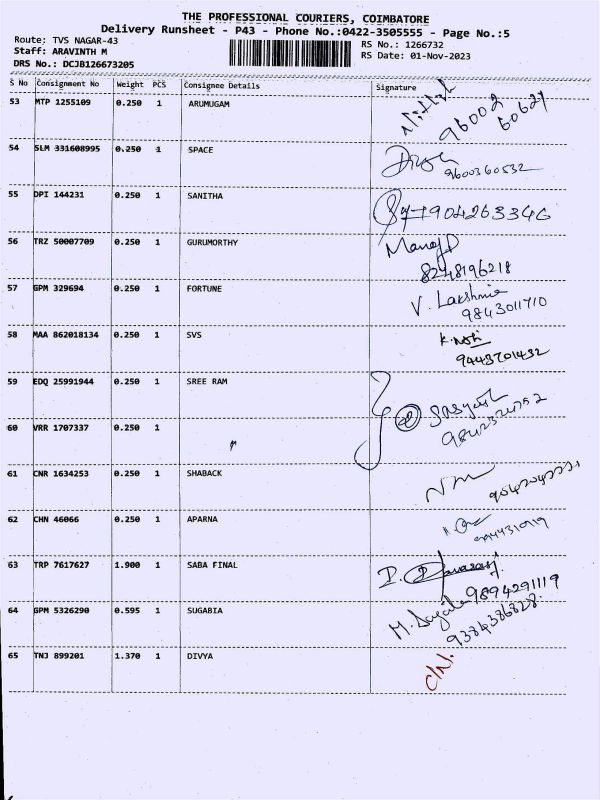 THE PROFESSIONAL COURIERS, COIMBATORE
Delivery Runsheet - P43 - Phone No.:0422-3505555 - Page No.:5
Route: TVS NAGAR-43
RS No.: 1266732
Staff: ARAVINTH M
RS Date: 01-Nov-2023
DRS No.: DCJB126673205
S No Consignment No Weight PCS Consignee Details Signature
53 MTP 1255109 0.250 1 ARUMUGAM
96002
60621
54 SLM 331608995 0.250 1 SPACE
9600360532
55 DPI 144231 0.250 1 SANITHA
904263346
56 TRZ 50007709 0.250 1 GURUMORTHY Manoj.P
8248196218
57 GPM 329694 0.250 1 FORTUNE V. Lakshmie
9843011710
58 MAA 862018134 0.250 1 SVS
9443701432
59 EDQ 25991944 0.250 1 SREE RAM
60 VRR 1707337 0.250 1
61 CNR 1634253 0.250 1 SHABACK
62 CHN 46066 0.250 1 APARNA
63 TRP 7617627 1.900 1 SABA FINAL
9894291119
64 GPM 5326290 0.595 1 SUGABIA
9384386828.
65 TNJ 899201 1.370 1 DIVYA